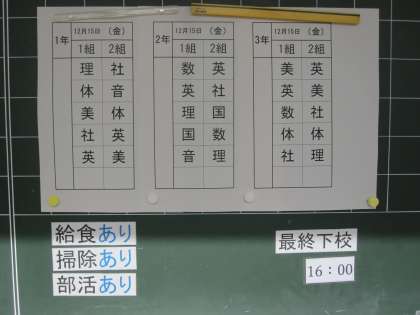 1年 12月15日（金）
1組 2組
理 社
体 音
美 体
社 英
英 美
2年 12月15日（金）
1組 2組
数 英
英 社
理 国
国 数
音 理
3年 12月15日（金）
1組 2組
美 英
英 美
数 社
体 体
社 理
給食あり
掃除あり
部活あり
最終下校
16：00